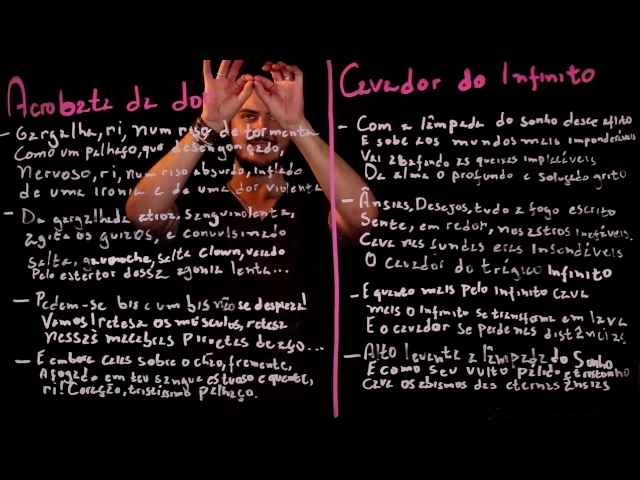 Acrobata da dor
- Gargalha, ri, num riso de tormenta
Como um palhaço, que desengonçado,
nervoso, ri, num riso absurdo, inflado
de uma ironia e de uma dor violenta
- Da gargalhada atroz, sanguinolenta,
agita os guizos, e convulsionado
salta, gavroche, salta clown, varado
Pelo estertor dessa agonia lenta...
- Pedem-se bis e um bis não se despreza!
Vamos! retesa os músculos, retesa
nessas macabras piruetas de aço...
- E embora caias sobre o chão, fremente,
Afogado em teu sangue estuoso e quente,
ri! Coração, tristíssimo palhaço.
Cavador do Infinito
- Com a lâmpada do sonho desce aflito
E sobe aos mundos mais imponderáveis
Vai abafando as queixas implacáveis
Da alma o profundo e soluçado grito
- Ânsias, Desejos, tudo a fogo escrito
Sente, em redor, nos astros inefáveis.
Cava nas fundas eras insondáveis
O cavador do trágico Infinito
- E quanto mais pelo Infinito cava
mais o Infinito se transforma em lava
E o cavador se perde nas distâncias
- Alto levanta a lâmpada do Sonho
E como seu vulto pálido e tristonho
Cava os abismos das eternas ânsias